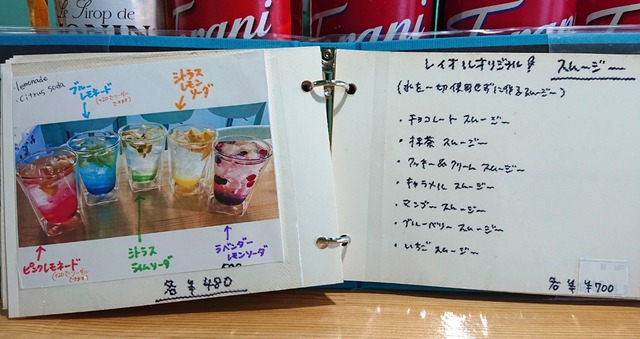 Le Sirop de
MONIN
Torani
Torani
Torani
lemonade
・citrus soda
ブルー
レモネード
シトラス
レモン
ソーダ
ピンクレモネード
シトラス
ライムソーダ
ラベンダー
レモンソーダ
各 ¥480
レイオルオリジナル
スムージー
(氷を一切使用せずに作るスムージー)
・チョコレート スムージー
・抹茶 スムージー
・クッキー&クリーム スムージー
・キャラメル スムージー
・マンゴー スムージー
・ブルーベリー スムージー
・いちご スムージー
各 ¥700